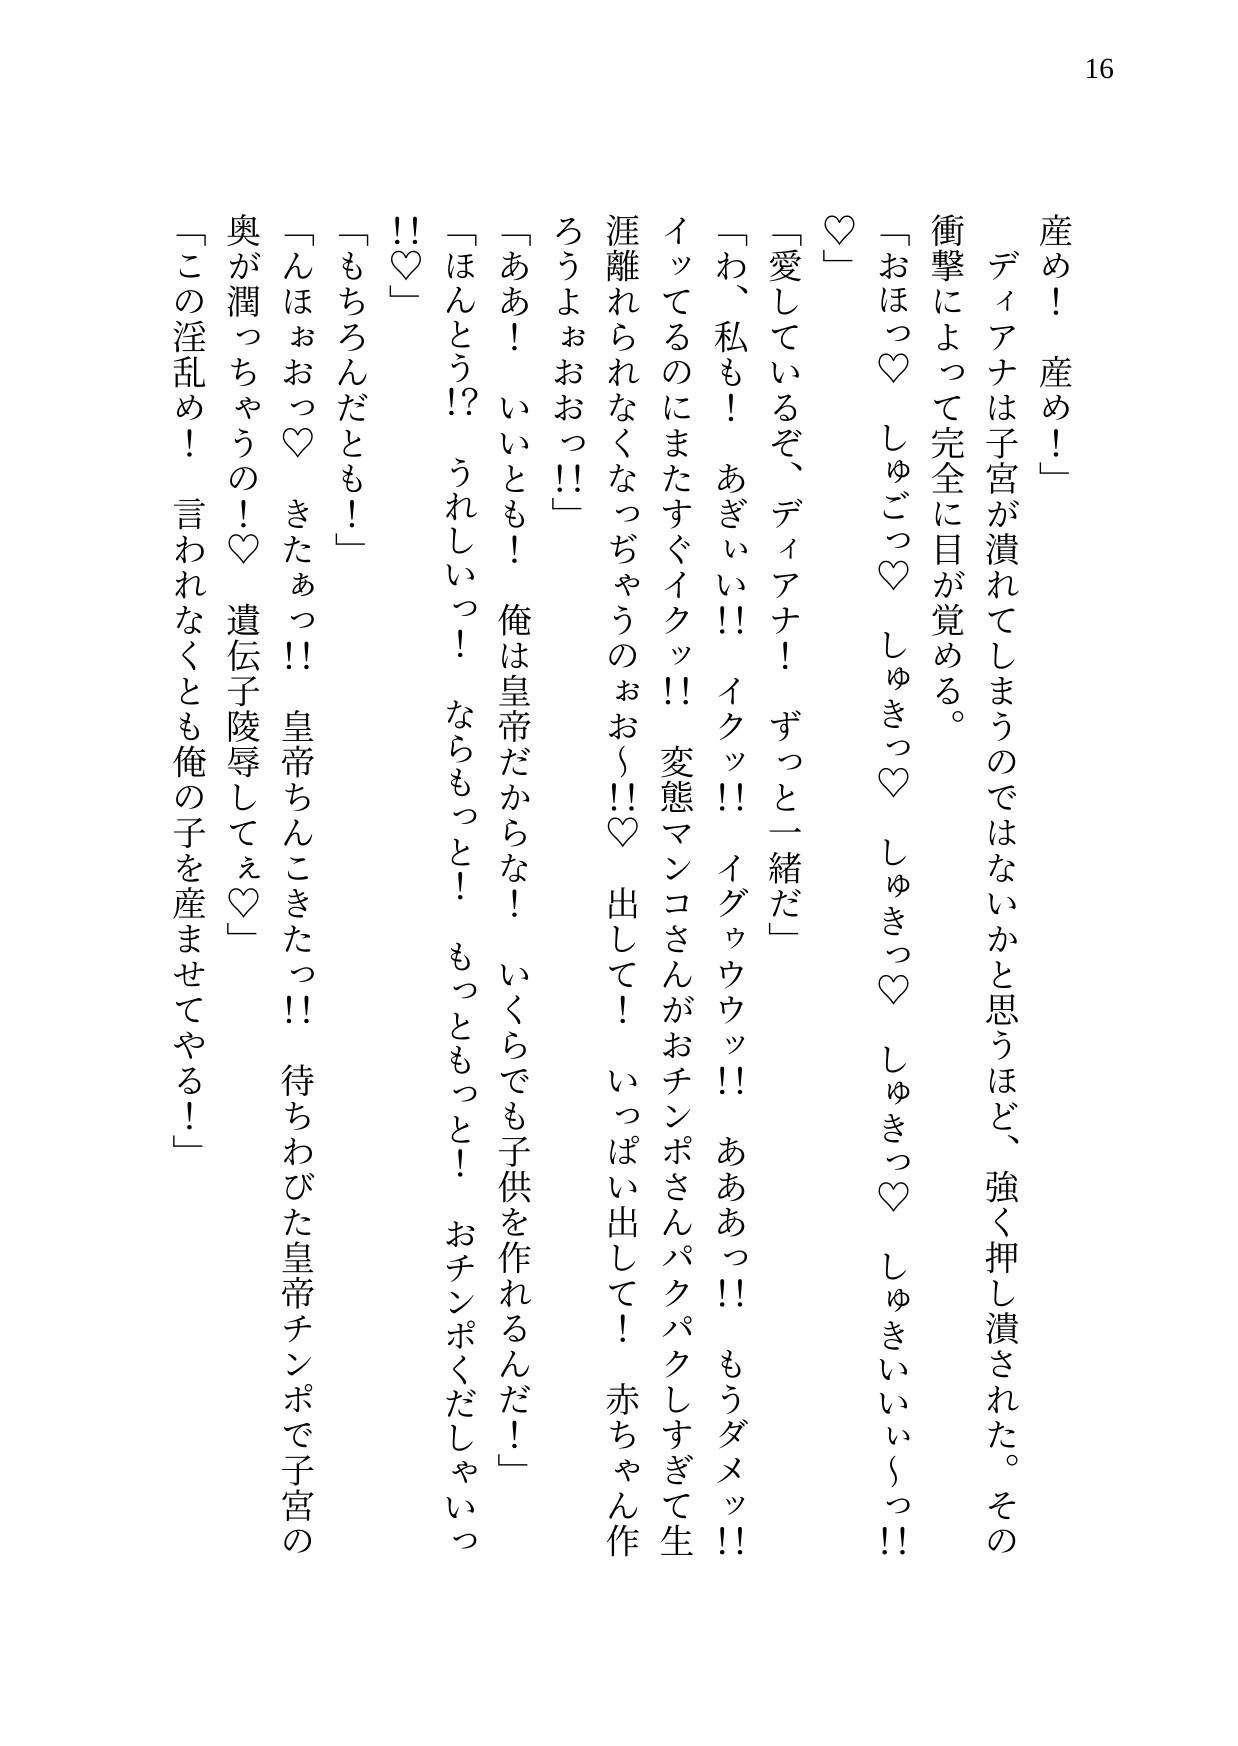 16
産め！　産め！」
　ディアナは子宮が潰れてしまうのではないかと思うほど、強く押し潰された。その
衝撃によって完全に目が覚める。
「おほっ♡　しゅごっ♡　しゅきっ♡　しゅきっ♡　しゅきっ♡　しゅきいいぃ～っ!!
♡」
「愛しているぞ、ディアナ！　ずっと一緒だ」
「わ、私も！　あぎぃい!!　イクッ!!　イグゥウウッ!!　あああっ!!　もうダメッ!!
イッてるのにまたすぐイクッ!!　変態マンコさんがおチンポさんパクパクしすぎて生
涯離れられなくなっぢゃうのぉお～!!♡　出して！　いっぱい出して！　赤ちゃん作
ろうよぉおおっ!!」
「ああ！　いいとも！　俺は皇帝だからな！　いくらでも子供を作れるんだ！」
「ほんとう!?　うれしいっ！　ならもっと！　もっともっと！　おチンポくだしゃいっ
!!♡」
「もちろんだとも！」
「んほぉおっ♡　きたぁっ!!　皇帝ちんこきたっ!!　待ちわびた皇帝チンポで子宮の
奥が潤っちゃうの！♡　遺伝子陵辱してぇ♡」
「この淫乱め！　言われなくとも俺の子を産ませてやる！」